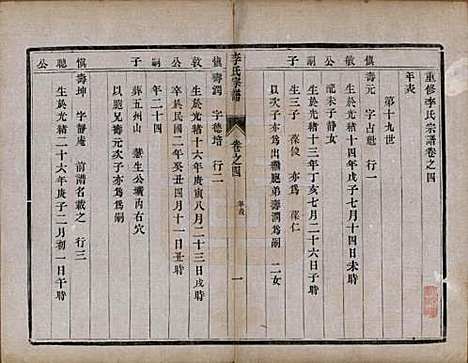 重修李氏宗譜卷之四
年表
第十九世
慎敏公嗣子
壽元 字占魁 行一
生於光緒十四年戊子六月十七日未時
配朱子靜女
生於光緒十三年丁亥七月二十六日子時
生三子 葆俊 葆仁
次子亦 出繼胞弟壽潤為嗣 二女
李氏宗譜 卷之四 年表 一
慎敦公嗣子
壽潤 字德培 行二
生於光緒十六年庚寅八月二十三日戌時
卒於民國二年癸丑四月十一日子時
年二十四
葬五州山 慧生公壙內右穴
以胞兄壽元次子亦為嗣
慎聰公
壽坤 字靜庵 前譜名載之 行三
生於光緒二十六年庚子二月初一日午時